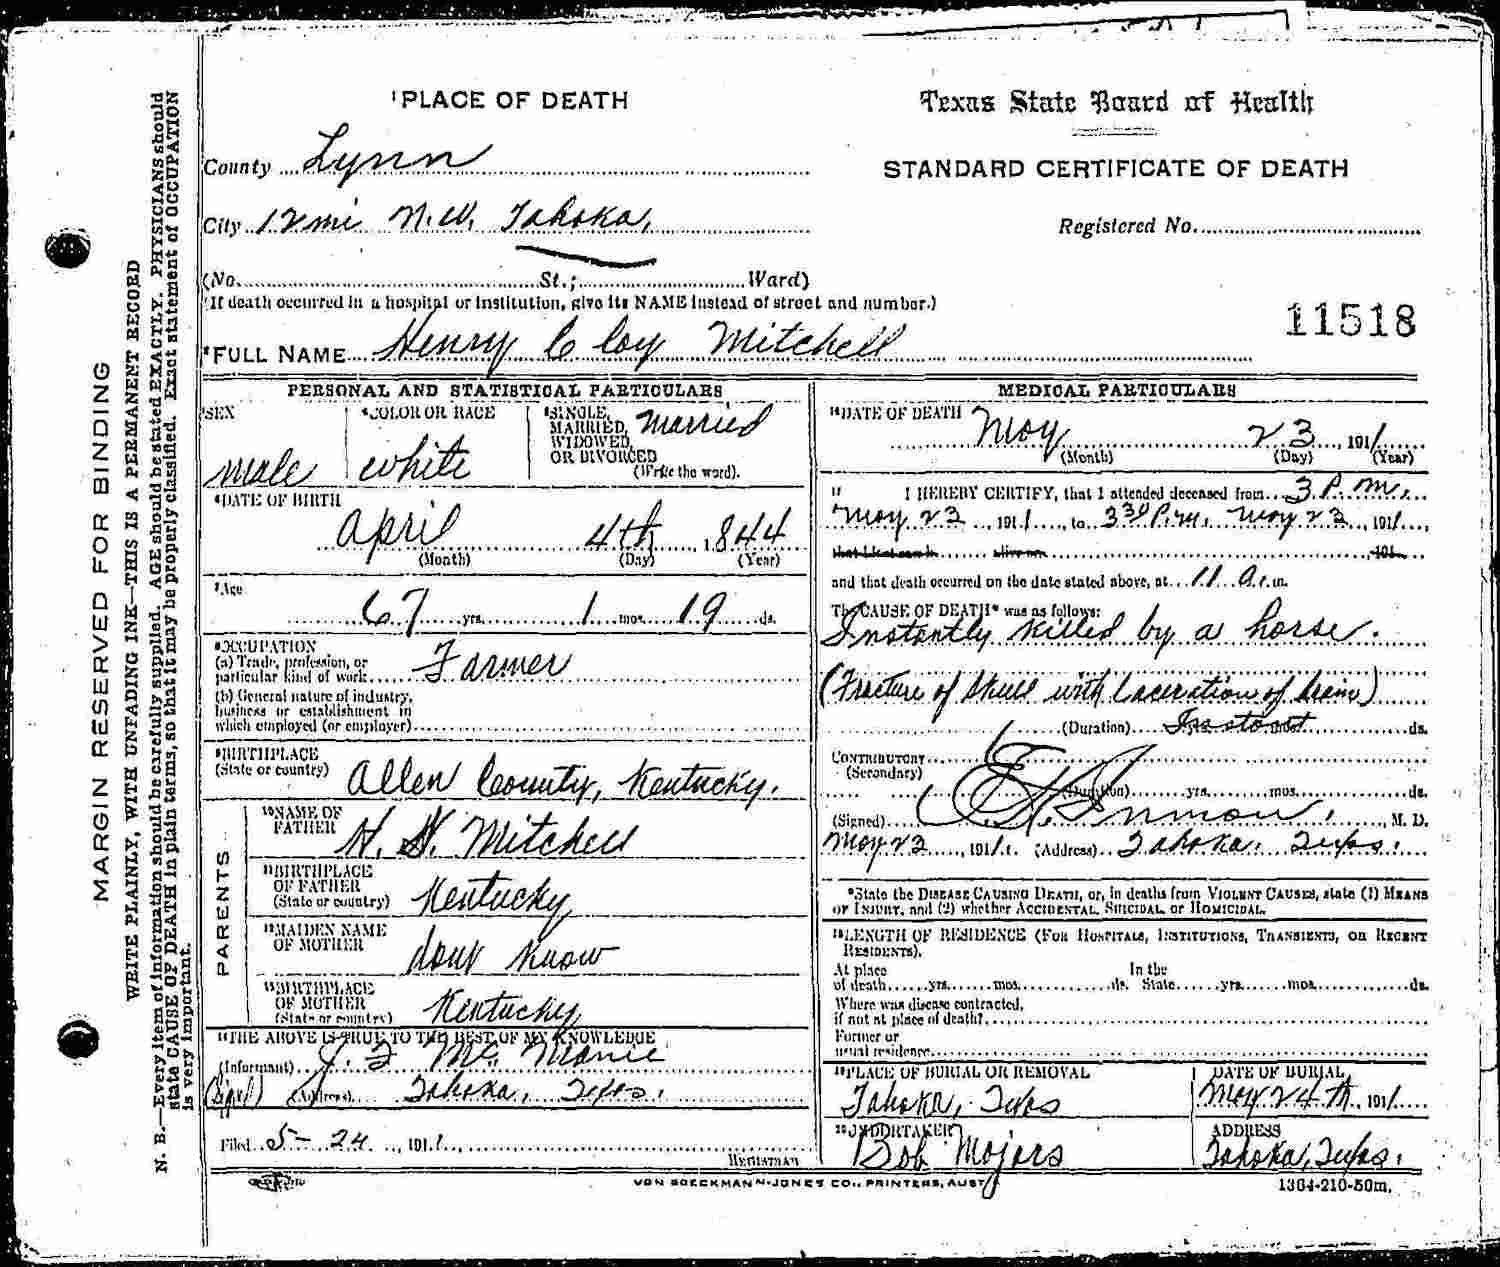 ¹PLACE OF DEATH
Texas State Board of Health
County Lynn
STANDARD CERTIFICATE OF DEATH
City 12 mi N.W. Tahoka,
Registered No.
(No. St.; Ward)
(If death occurred in a hospital or institution, give its NAME instead of street and number.)
11518
²FULL NAME Henry Cloy Mitchell
PERSONAL AND STATISTICAL PARTICULARS
SEX
male
⁴COLOR OR RACE
white
⁵SINGLE,
MARRIED,
WIDOWED,
OR DIVORCED
(Write the word).
Married
⁶DATE OF BIRTH
April 4th, 1844
(Month) (Day) (Year)
⁷Age
67 yrs. 1 mos. 19 ds.
⁸OCCUPATION
(a) Trade, profession, or
particular kind of work Farmer
(b) General nature of industry,
business or establishment in
which employed (or employer)
⁹BIRTHPLACE
(State or country) Allen County, Kentucky.
PARENTS
¹⁰NAME OF
FATHER H. H. Mitchell
¹¹BIRTHPLACE
OF FATHER
(State or country) Kentucky
¹²MAIDEN NAME
OF MOTHER dont know
¹³BIRTHPLACE
OF MOTHER
(State or country) Kentucky
¹⁴THE ABOVE IS TRUE TO THE BEST OF MY KNOWLEDGE
(Informant) J. F. Mc
(Address) Tahoka, Texas.
Filed 5-24, 1911
REGISTRAR
MEDICAL PARTICULARS
¹⁶DATE OF DEATH
May 23, 1911
(Month) (Day) (Year)
¹⁷ I HEREBY CERTIFY, that I attended deceased from 3 P.m.
May 23, 1911, to 3 30 P.m. May 23, 1911,
that I last saw h alive on , 191
and that death occurred on the date stated above, at 11 a.m.
The CAUSE OF DEATH* was as follows:
Instantly killed by a horse.
(Fracture of Skull with Laceration of brain)
(Duration) Instant yrs. mos. ds.
CONTRIBUTORY
(Secondary)
(Duration) yrs. mos. ds.
(Signed) Inmon, M. D.
May 23, 1911. (Address) Tahoka, Texas.
*State the DISEASE CAUSING DEATH, or, in deaths from VIOLENT CAUSES, state (1) MEANS
OF INJURY, and (2) whether ACCIDENTAL, SUICIDAL, or HOMICIDAL.
¹⁸LENGTH OF RESIDENCE (FOR HOSPITALS, INSTITUTIONS, TRANSIENTS, OR RECENT
RESIDENTS).
At place In the
of death yrs. mos. ds. State yrs. mos. ds.
Where was disease contracted,
if not at place of death?
Former or
usual residence
¹⁹PLACE OF BURIAL OR REMOVAL
Tahoka, Texas
DATE OF BURIAL
May 24th, 1911
²⁰UNDERTAKER
Bob Majors
ADDRESS
Tahoka, Texas.
VON BOECKMANN-JONES CO., PRINTERS, AUSTIN
1364-210-50m.
MARGIN RESERVED FOR BINDING
WRITE PLAINLY, WITH UNFADING INK—THIS IS A PERMANENT RECORD
N. B.—Every item of information should be carefully supplied. AGE should be stated EXACTLY. PHYSICIANS should
state CAUSE OF DEATH in plain terms, so that it may be properly classified. Exact statement of OCCUPATION
is very important.